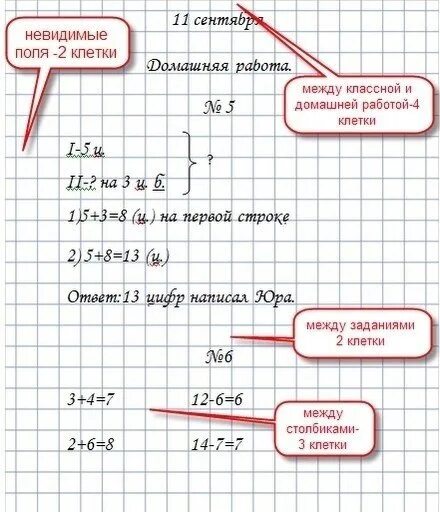 11 сентября
невидимые
поля -2 клетки
Домашняя работа.
между классной и
домашней работой-4
клетки
№ 5
I-5 ц.
II-? на 3 ц. б.
?
1)5+3=8 (ц.) на первой строке
2) 5+8=13 (ц.)
Ответ:13 цифр написал Юра.
между заданиями
2 клетки
№6
3+4=7 12-6=6
2+6=8 14-7=7
между
столбиками-
3 клетки